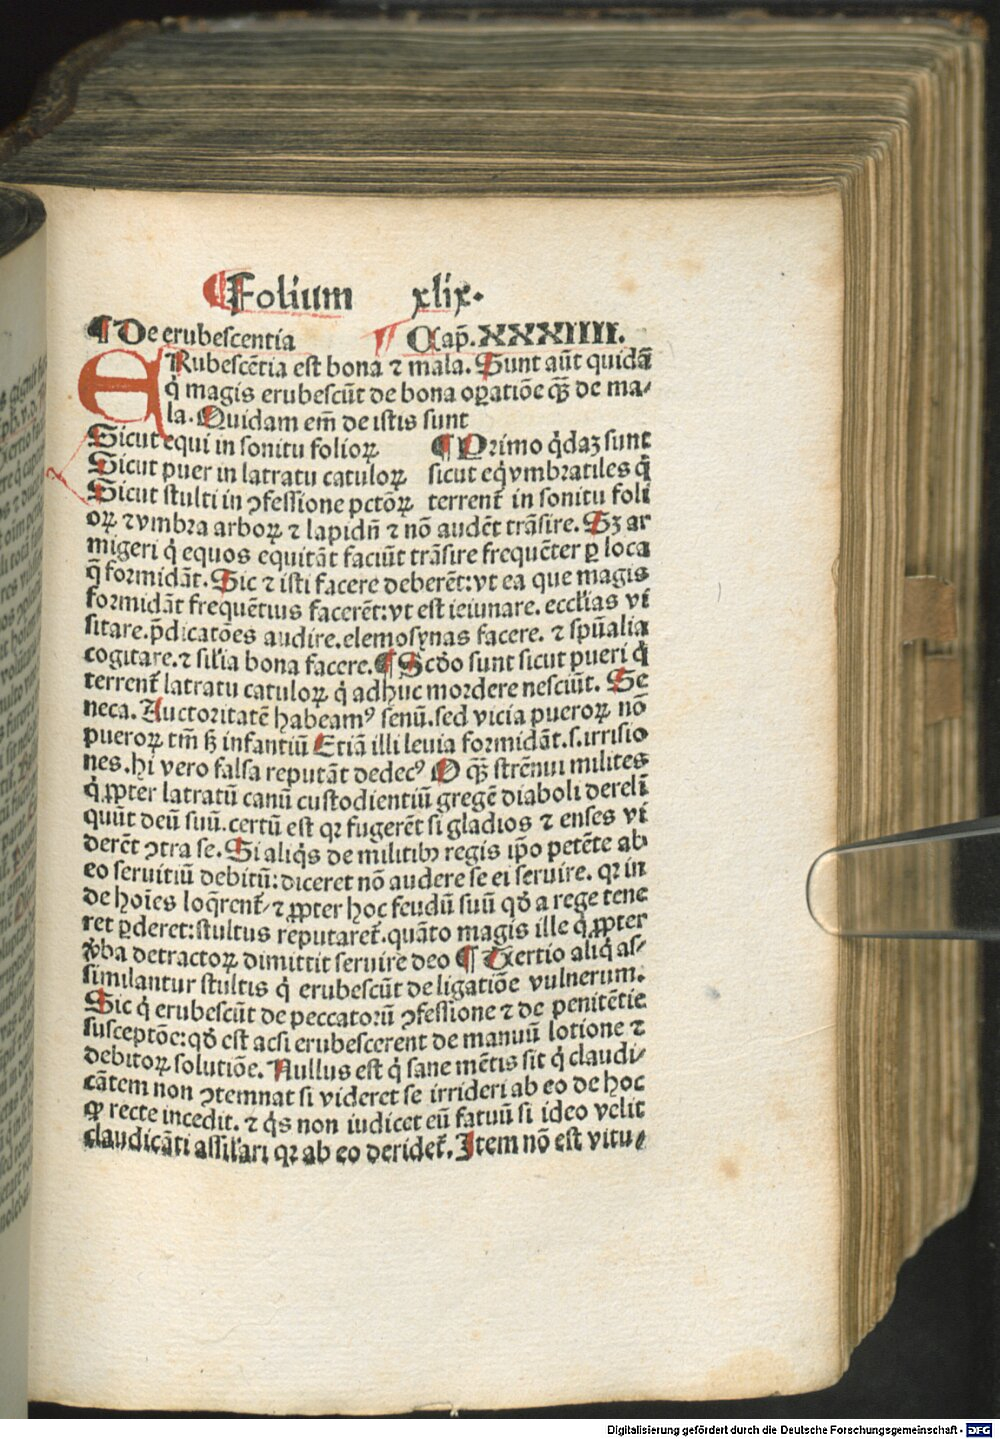 ¶Folium xlix.
¶De erubescentia ¶ Cap̄. XXXIIII.
ERubescētia est bona ⁊ mala. Sunt aūt quidā
q̇ magis erubescūt de bona oꝑatiōe qꝫ̄ de ma⸗
la. Quidam em̄ de istis sunt
Sicut equi in sonitu folioꝝ ¶ Primo q̇daꝫ sunt
Sicut puer in latratu catuloꝝ sicut eq̇ vmbratiles q̇
Sicut stulti in ꝯfessione pctōꝝ terrent̄ in sonitu foli
oꝝ ⁊ vmbra arboꝝ ⁊ lapidū ⁊ nō audēt trāsire. Sꝫ ar
migeri q̇ equos equitāt faciūt trāsire frequēter ꝑ loca
q̄ formidāt. Sic ⁊ isti facere deberēt: vt ea que magis
formidāt frequētius facerēt: vt est ieiunare. eccl'ias vi
sitare. p̄dicatōes audire. elemosynas facere. ⁊ spūalia
cogitare. ⁊ sil'ia bona facere. ¶ Scd̄o sunt sicut pueri q̇
terrent̄ latratu catuloꝝ q̇ adhuc mordere nesciūt. Se
neca. Auctoritatē habeamꝰ senū. sed vicia pueroꝝ nō
pueroꝝ tm̄ sꝫ infantiū Etiā illi leuia formidāt. s. irrisio
nes. hi vero falsa reputāt dedecꝰ O qꝫ̄ strēnui milites
q̇ ꝓpter latratū canū custodientiū gregē diaboli dereli
quūt deū suū. certū est qꝛ fugerēt si gladios ⁊ enses vi
derēt ꝯtra se. Si aliq̇s de militibꝫ regis ip̄o petēte ab
eo seruitiū debitū: diceret nō audere se ei seruire. qꝛ in
de hoīes loq̄rent̄ ⁊ ꝓpter hoc feudū suū qd̄ a rege tene
ret ꝑderet: stultus reputaret̄. quāto magis ille q̇ ꝓpter
v̄ba detractoꝝ dimittit seruire deo ¶ Tertio aliq̇ as⸗
similantur stultis q̇ erubescūt de ligatiōe vulnerum.
Sic q̇ erubescūt de peccatorū ꝯfessione ⁊ de penitētie
susceptōe: qd̄ est acsi erubescerent de manuū lotione ⁊
debitoꝝ solutiōe. Nullus est q̇ sane mētis sit q̇ claudi⸗
cātem non ꝯtemnat si videret se irrideri ab eo de hoc
ꝙ recte incedit. ⁊ q̇s non iudicet eū fatuū si ideo velit
claudicāti assil'ari qꝛ ab eo deridet̄. Item nō est vitu⸗
Digitalisierung gefördert durch die Deutsche Forschungsgemeinschaft - DFG